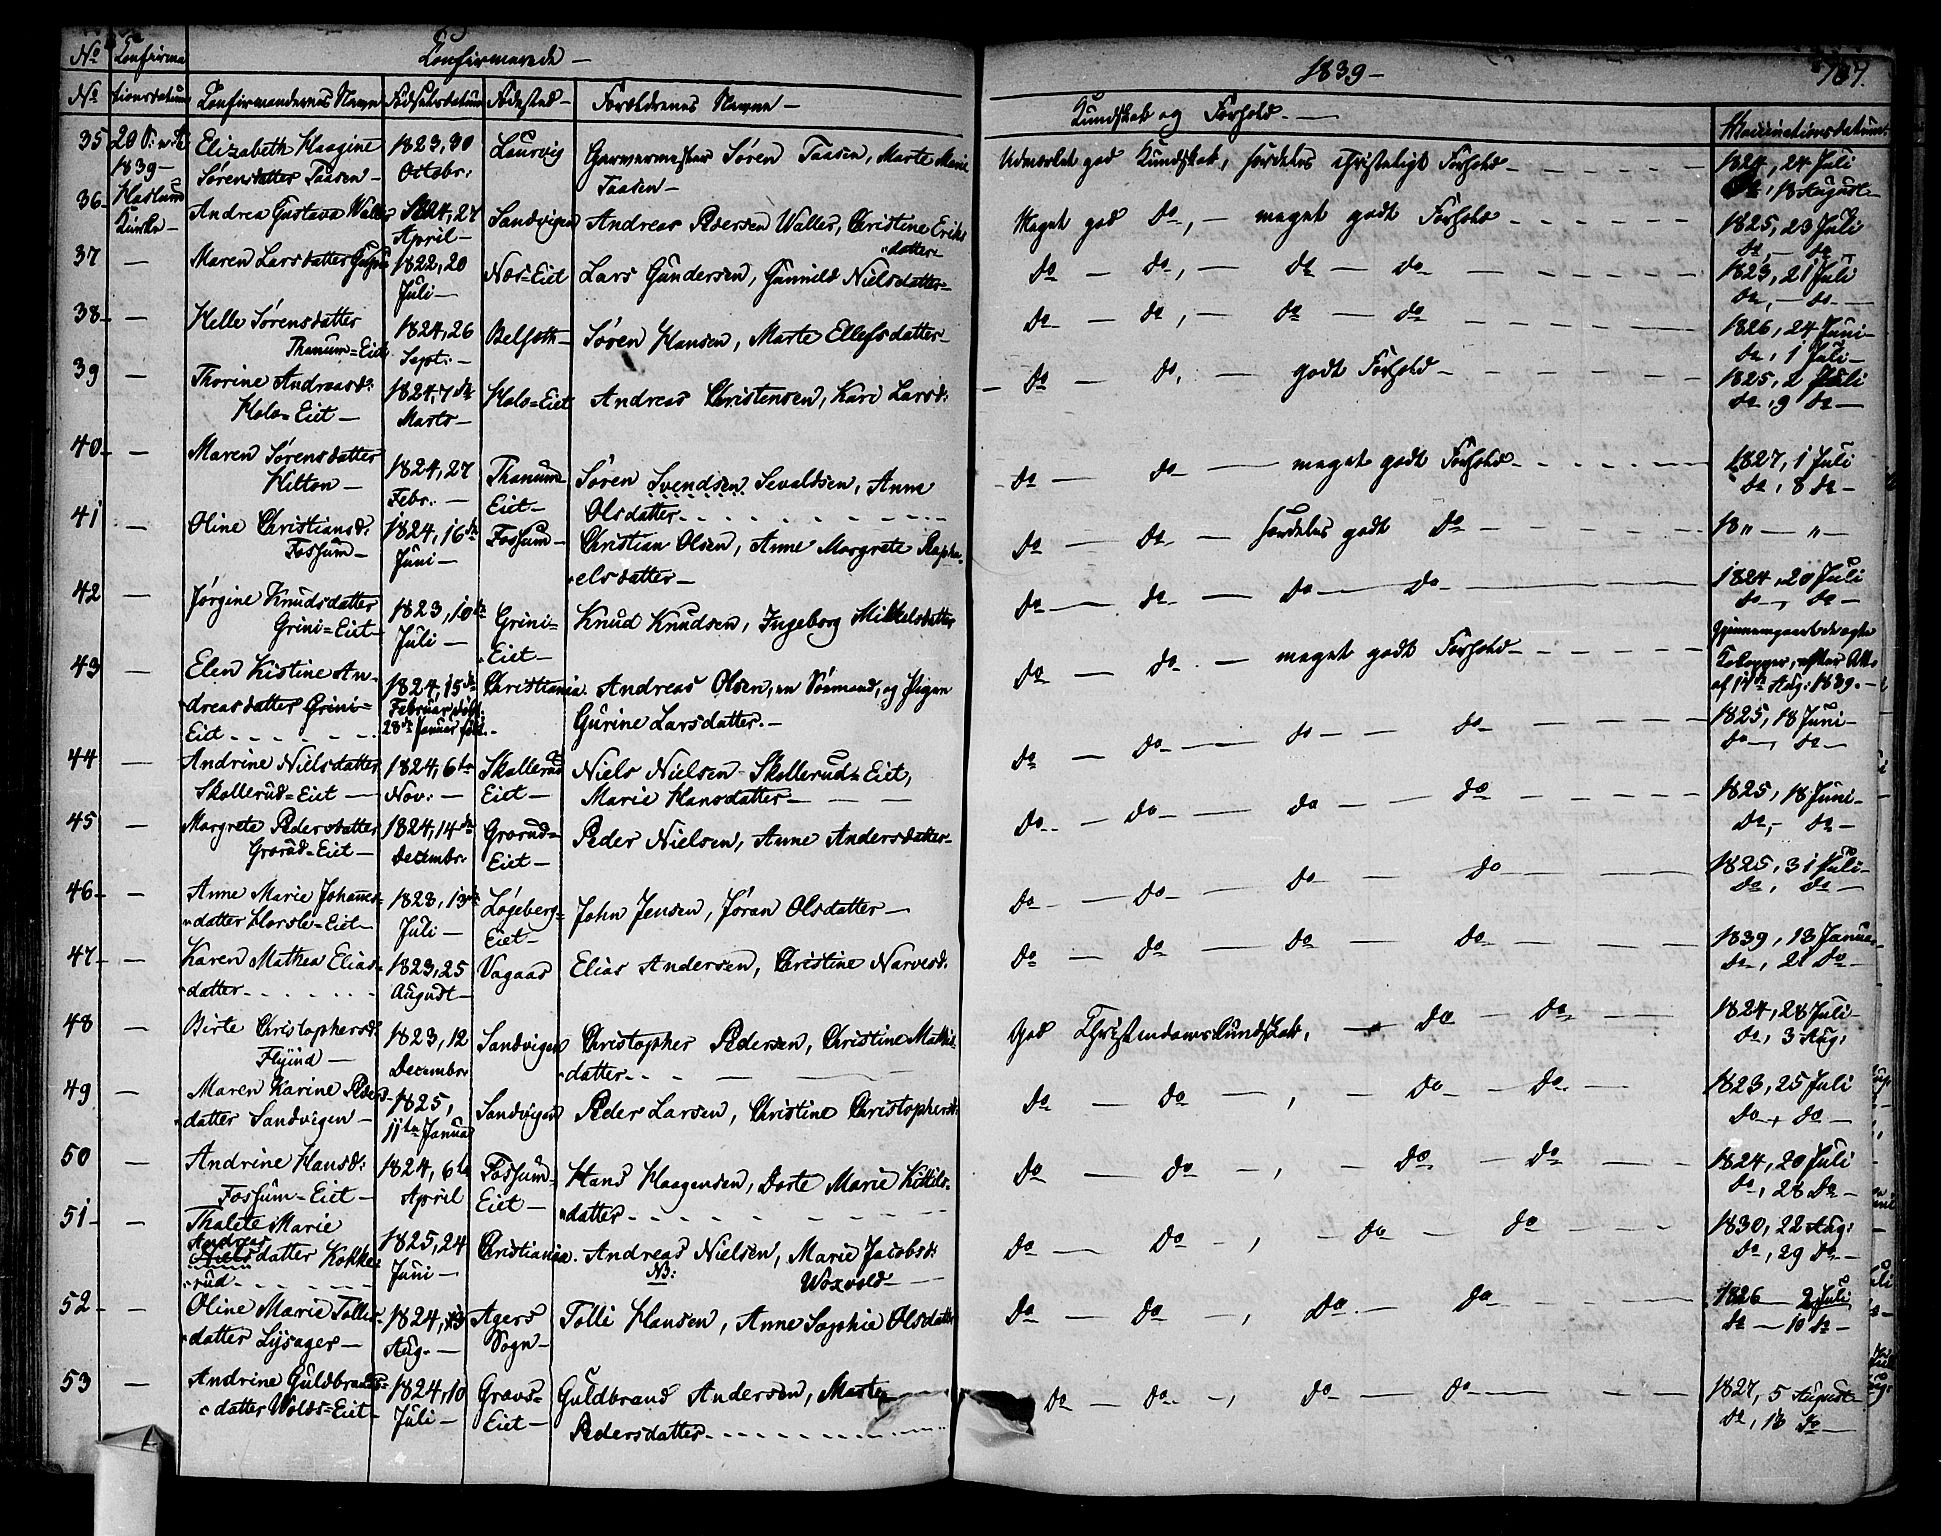 No Confirma Confirmerede — 1839 — 789.
No tionsdatum Confirmandernes Navne Fødselsdatum Fødested — Forældrenes Navne — Kundskab og Forhold — Vaccinationsdatum
35 1839 — Elizabeth Haagine Sørensdatter Taasen — 1823, 30 Octobr: Laurvig Garvermester Søren Taasen, Marte Marie Taasen — Udmærket god Kundskab, særdeles christeligt Forhold — 1824, 24 Juli do, 18 August —
36 Haslum Kirke — Andrea Gustava Waller 1824, 27 April — Sandvigen Andreas Pedersen Waller, Christine Eriks datter — Meget god do, — meget godt Forhold — 1825, 23 Juli do, do —
37 — Maren Larsdatter 1822, 20 Juli — Næs=Eiet Lars Gundersen, Gunnild Nielsdatter — do — do, — do — do — 1823, 21 Juli do, — do —
38 — Helle Sørensdatter Thanum=Eiet 1824, 26 Sept: — Søren Hansen, Marte Ellefsdatter — do — do, — do — do — 1826, 24 Juni — do, 1 Juli —
39 — Thorine Andreasd: Holo=Eiet — 1824, 7de Marts — Holo=Eiet Andreas Christensen, Kari Larsd: — do — do, — godt Forhold — 1825, 2 Juli do, 9 do —
40 — Maren Sørensdatter Kitton — 1824, 27 Febr: — Thanum Eiet — Søren Svendsen Sevaldsen, Anne Olsdatter — do — do — meget godt Forhold — 1827, 1 Juli do, 8 do —
41 — Oline Christiansd: Fossum — 1824, 16de Juni — Fossum — Christian Olsen, Anne Margrete Rapha- elsdatter — do — do — særdeles godt do — 18 „ — „ —
42 — Jørgine Knudsdatter Grini=Eiet — 1823, 10de Juli — Grini= Eiet — Knud Knudsen, Ingeborg Mikkelsdatter do — do — do — do — 1824, 20 Juli do —, do —
43 — Elen Kistine An- dreasdatter Grini= Eiet — 1824, 15de Februar døbt. 28de Januar født. Christiania. Andreas Olsen, en Sømand, og Pigen Gurine Larsdatter. — do — do — meget godt Forhold — Gjennemgaaet de ægte Kokopper, efter Att: af 17de Aug: 1839. —
44 — Andrine Nielsdatter Skollerud=Eiet — 1824, 6te Nov: — Skollerud Eiet — Niels Nielsen Skollerud=Eiet, Marie Hansdatter — do — do — do — do — 1825, 18 Juni — do —, do —
45 — Margrete Pedersdatter Grorud=Eiet — 1824, 14de Decembr. Grorud= Eiet — Peder Nielsen, Anne Andersdatter — do — do — do — do — 1825, 18 Juni — do, — do —
46 — Anne Marie Johannes- datter Horsle=Eiet — 1823, 13de Juli — Løgeberg= Eiet — John Jensen, Jøran Olsdatter — do — do — do — do 1825, 31 Juli — do, do —
47 — Karen Mathea Elias- datter — 1823, 25 August — Vagaas Elias Andersen, Christine Narvesd: do — do — do — do — 1839, 13 Januar do, 21 do —
48 — Birte Christophersd: Flyind — 1823, 12 Decembr. Sandvigen Christopher Pedersen, Christine Mathis- datter — God Christendomskundskab, — do — do — 1824, 28 Juli — do, 3 Aug:
49 — Maren Karine Peders- datter Sandvigen — 1825, 11te Januar Sandvigen Peder Larsen, Christine Christophersd: do — do —, — do — do — 1823, 25 Juli do —, do —
50 — Andrine Hansd: Fossum=Eiet — 1824, 6te April Fossum= Eiet — Hans Haagensen, Dorte Marie Kittils- datter — do — do —, — do — do — 1824, 20 Juli do, 28 do —
51 — Thalete Marie Andreas datter Kokke- rud — 1825, 24 Juni — Christiania. Andreas Nielsen, Marie Jacobsd: NB: Woxvold — do — do —, — do — do — 1830, 22 Aug: do, 29 do —
52 — Oline Marie Tollis- datter Lysager — 1824, Aug. — Agers Sogn — Tolli Hansen, Anne Sophie Olsdatter do — do —, do — do — 1826 — 2 Juli do — 10 do —
53 — Andrine Guldbrands- datter Wolds=Eiet — 1824, 10 Juli — Gravs= Eiet — Guldbrand Andersen, Marte Pedersdatter — do — do —, do — do — 1827, 5 August — do, 13 do —